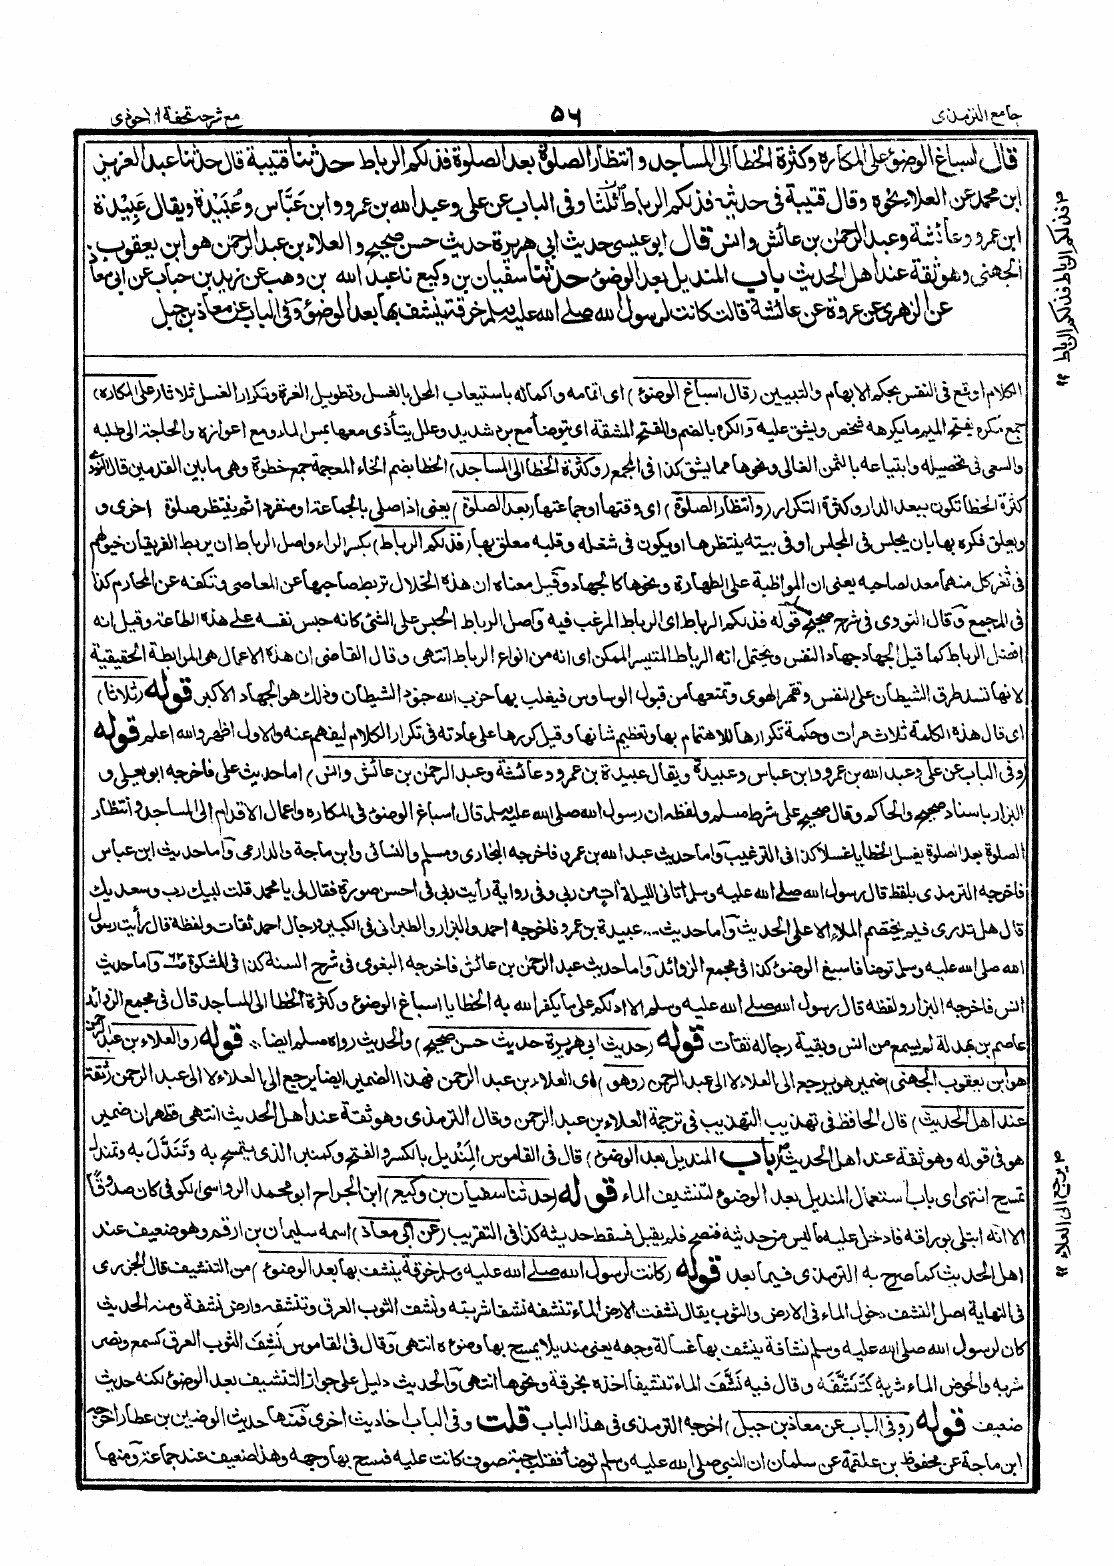 جامع الترمذی
۵۶
مع شرحہ تحفة الاحوذی
قال اسباغ الوضوء علی المکارہ وکثرة الخطا الی المساجد وانتظار الصلوة بعد الصلوة فذلکم الرباط حدثنا قتیبة قال حدثنا عبد العزیز
ابن محمد عن العلاء نحوہ وقال قتیبة فی حدیثہ فذلکم الرباط ثلثا وفی الباب عن علی وعبد اللہ بن عمرو وابن عَبَّاس وعُبَیْدَة ویقال عَبِیْدَة
ابن عمرو وعائشة وعبد الرحمٰن بن عائش وانس قال ابو عیسی حدیث ابی هریرة حدیث حسن صحیح والعلاء بن عبد الرحمٰن هو ابن یعقوب
الجهنی وهو ثقة عند اهل الحدیث باب المندیل بعد الوضوء حدثنا سفیان بن وکیع نا عبد اللہ بن وهب عن زید بن حباب عن ابی معاذ
عن الزهری عن عروة عن عائشة قالت کانت لرسول اللہ صلی اللہ علیہ وسلم خرقة ینشف بها بعد الوضوء وفی الباب عن معاذ بن جبل
الکلام اوقع فی النفس بحکم الابهام والتبیین (قال اسباغ الوضوء) ای اتمامہ واکمالہ باستیعاب المحل بالغسل وتطویل الغرة وتکرار الغسل ثلاثا (علی المکارہ)
جمع مکرہ بفتح المیم مایکرهہ شخص ویشق علیہ والکرہ بالضم والفتح المشقة ای یتوضأ مع برد شدید وعلل یتأذی معها بمس الماء ومع اعوازہ والحاجة الی طلبہ
والسعی فی تحصیلہ وابتیاعہ بالثمن الغالی ونحوها مما یشق کذا فی المجمع (وکثرة الخطا الی المساجد) الخطا بضم الخاء المعجمة جمع خطوة وهی مابین القدمین قال النووی
کثرة الخطا تکون ببعد الدار وکثرة التکرار (وانتظار الصلوة) ای وقتها او جماعتها (بعد الصلوة) یعنی اذا صلی بالجماعة او منفردا ثم ینتظر صلوة اخری و
یعلق فکرہ بها بان یجلس فی المجلس او فی بیتہ ینتظرها او یکون فی شغلہ وقلبہ معلق بها (فذلکم الرباط) بکسر الراء واصل الرباط ان یربط الفریقان خیولهم
فی ثغر کل منهما معد لصاحبہ یعنی ان المواظبة علی الطهارة ونحوها کالجهاد وقیل معناہ ان هذہ الخلال تربط صاحبها عن المعاصی وتکفہ عن المحارم کذا
فی المجمع وقال النووی فی شرح صحیح قولہ فذلکم الرباط ای الرباط المرغب فیہ واصل الرباط الحبس علی الشئ کانہ حبس نفسہ علی هذہ الطاعة وقیل انہ
افضل الرباط کما قیل الجهاد جهاد النفس ویحتمل انہ الرباط المتیسر الممکن ای انہ من انواع الرباط انتهی وقال القاضی ان هذہ الاعمال هی المرابطة الحقیقیة
لانها تسد طرق الشیطان علی النفس وتقهر الهوی وتمنعها من قبول الوساوس فیغلب بها حزب اللہ جنود الشیطان وذلک هو الجهاد الاکبر قولہ (ثلاثا)
ای قال هذہ الکلمة ثلاث مرات وحکمة تکرارها للاهتمام بها وتعظیم شانها وقیل کررها علی عادتہ فی تکرار الکلام لیفهم عنہ والاول اظهر واللہ اعلم قولہ
(وفی الباب عن علی وعبد اللہ بن عمرو وابن عباس وعبیدة ویقال عبیدة بن عمرو وعائشة وعبد الرحمٰن بن عائش وانس) اما حدیث علی فاخرجہ ابو یعلی و
البزار باسناد صحیح والحاکم وقال صحیح علی شرط مسلم ولفظہ ان رسول اللہ صلی اللہ علیہ وسلم قال اسباغ الوضوء فی المکارہ واعمال الاقدام الی المساجد وانتظار
الصلوة بعد الصلوة یغسل الخطایا غسلا کذا فی الترغیب واما حدیث عبد اللہ بن عمرو فاخرجہ البخاری ومسلم والنسائی وابن ماجة والدارمی واما حدیث ابن عباس
فاخرجہ الترمذی بلفظ قال رسول اللہ صلی اللہ علیہ وسلم اتانی اللیلة اٰت من ربی وفی روایة رأیت ربی فی احسن صورة فقال لی یا محمد قلت لبیک رب وسعدیک
قال هل تدری فیم یختصم الملاء الاعلی الحدیث واما حدیث ... عبیدة بن عمرو فاخرجہ احمد والبزار والطبرانی فی الکبیر ورجال احمد ثقات ولفظہ قال رأیت رسول
اللہ صلی اللہ علیہ وسلم توضأ فاسبغ الوضوء کذا فی مجمع الزوائد واما حدیث عبد الرحمٰن بن عائش فاخرجہ البغوی فی شرح السنة کذا فی المشکوة واما حدیث
انس فاخرجہ البزار ولفظہ قال رسول اللہ صلی اللہ علیہ وسلم الا ادلکم علی ما یکفر اللہ بہ الخطایا اسباغ الوضوء وکثرة الخطا الی المساجد قال فی مجمع الزوائد
عاصم بن بهدلة لم یسمع من انس وبقیة رجالہ ثقات قولہ (حدیث ابی هریرة حدیث حسن صحیح) والحدیث رواہ مسلم ایضا قولہ (والعلاء بن عبد الرحمن
هو ابن یعقوب الجهنی) ضمیر هو یرجع الی العلاء لا الی عبد الرحمن (وهو) ای العلاء بن عبد الرحمن فهذا الضمیر ایضا یرجع الی العلاء لا الی عبد الرحمن (ثقة
عند اهل الحدیث) قال الحافظ فی تهذیب التهذیب فی ترجمة العلاء بن عبد الرحمن وقال الترمذی وهو ثقة عند اهل الحدیث انتهی فظهر ان ضمیر
هو فی قولہ وهو ثقة عند اهل الحدیث (باب المندیل بعد الوضوء) قال فی القاموس المِندیل بالکسر والفتح وکمنبر الذی یتمسح بہ وتَنَدَّلَ بہ وتمندل
تمسح انتهی ای باب استعمال المندیل بعد الوضوء لتنشیف الماء قولہ (حدثنا سفیان بن وکیع) ابن الجراح ابو محمد الرواسی الکوفی کان صدوقًا
الا انہ ابتلی بوراقہ فادخل علیہ ما لیس من حدیثہ فنصح فلم یقبل فسقط حدیثہ کذا فی التقریب (عن ابی معاذ) اسمہ سلیمان بن ارقم وهو ضعیف عند
اهل الحدیث کما صرح بہ الترمذی فیما بعد قولہ (کانت لرسول اللہ صلی اللہ علیہ وسلم خرقة ینشف بها بعد الوضوء) من التنشیف قال الجزری
فی النهایة اصل النشف دخول الماء فی الارض والثوب یقال نشفت الارض الماء تنشفہ نشفا شربتہ ونشف الثوب العرق وتنشفہ وارض نشفة ومنہ الحدیث
کان لرسول اللہ صلی اللہ علیہ وسلم نشافة ینشف بها غسالة وجهہ یعنی مندیلا یمسح بها وضوءہ انتهی وقال فی القاموس نَشِفَ الثوب العرق کسمع ونصر
شربہ والحوض الماء شربہ کَتَنَشَّفَہ وقال فیہ نَشَّفَ الماء تنشیفا اخذہ بخرقة ونحوها انتهی والحدیث دلیل علی جواز التنشیف بعد الوضوء لکنہ حدیث
ضعیف قولہ (وفی الباب عن معاذ بن جبل) اخرجہ الترمذی فی هذا الباب قلت وفی الباب احادیث اخری فمنها حدیث الوضین بن عطاء اخرجہ
ابن ماجة عن محفوظ بن علقمة عن سلمان ان النبی صلی اللہ علیہ وسلم توضأ فقلب جبة صوف کانت علیہ فمسح بها وجهہ وهذا ضعیف عند جماعة ومنها
فذلکم الرباط فذلکم الرباط
یرجع الی العلاء